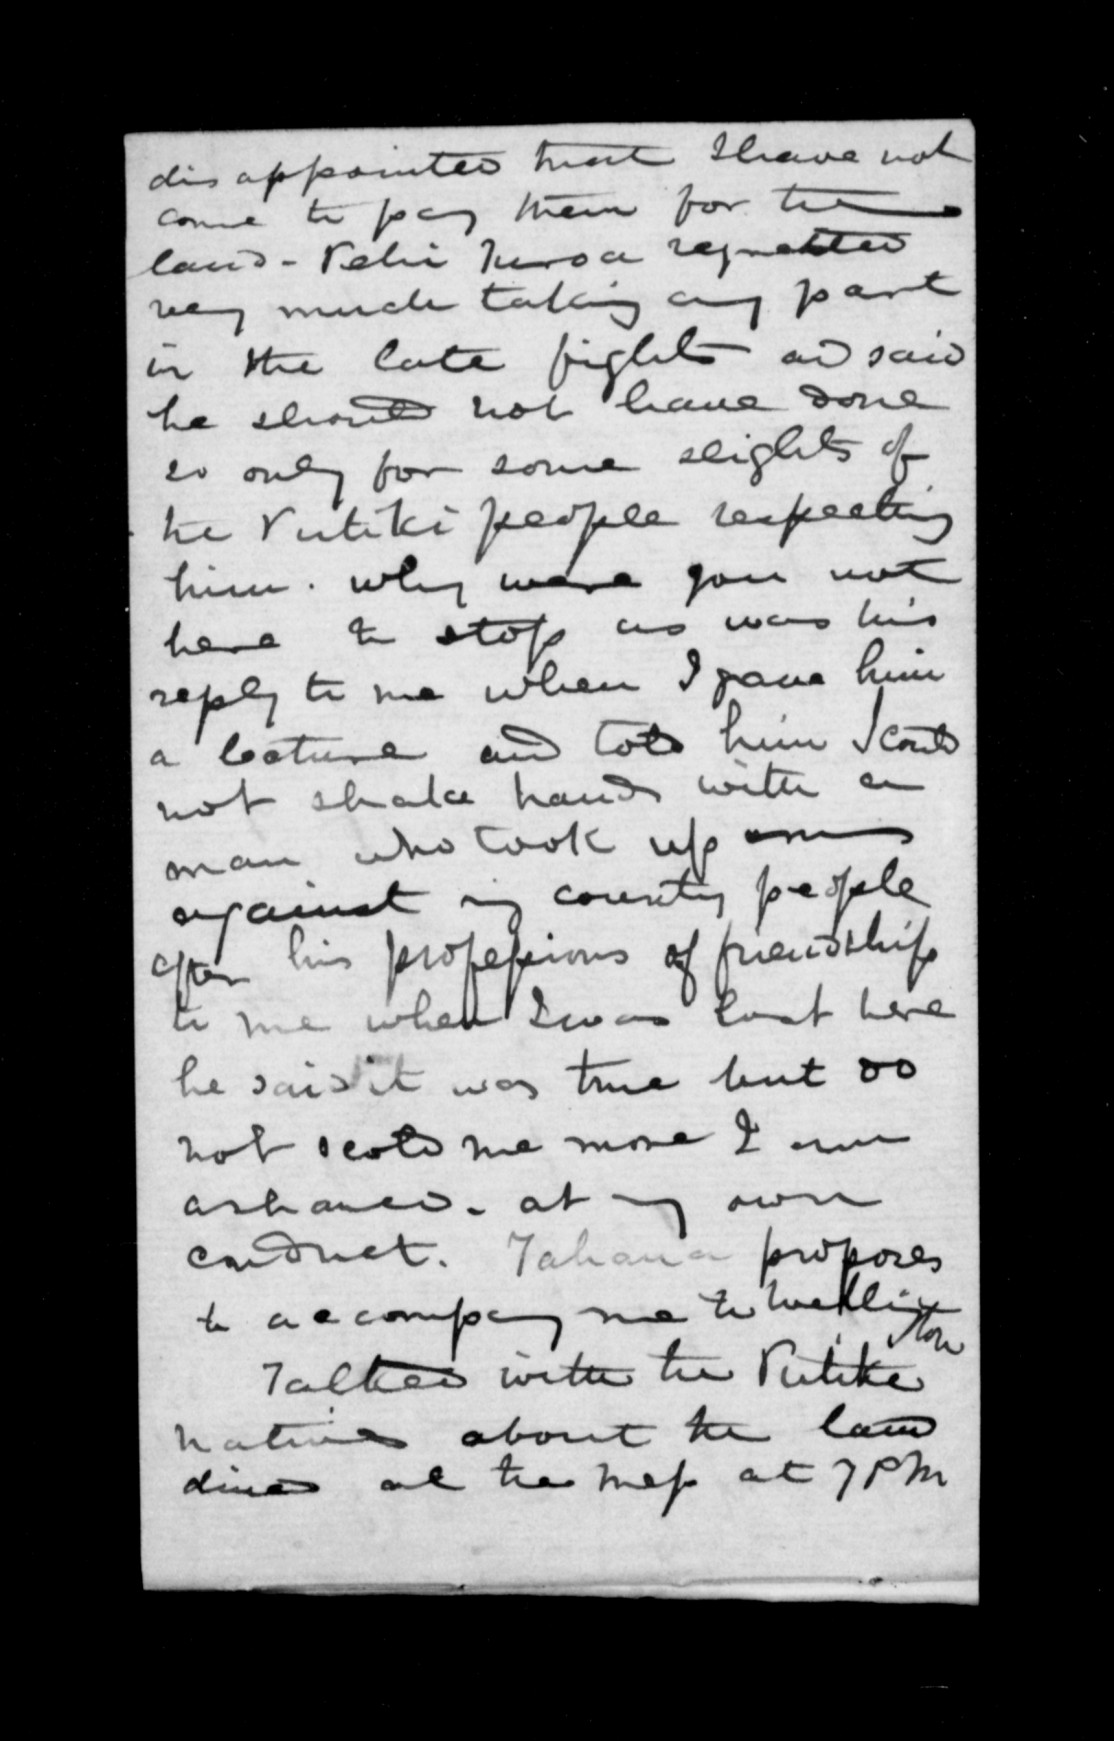 disappointed that I have not
come to pay them for the
land - Pehi Turoa regretted
very much taking any part
in the late fights and said
he should not have done
so only for some slights of
the Putiki people respecting
him. why were you not
here to stop us was his
reply to me when I gave him
a lecture and told him I could
not shake hands with a
man who took up arms
against my country people
after his professions of friendship
to me when I was last here
he said it was true but do
not scold me more I am
ashamed - at my own
conduct. Tahana proposes
to accompany me to Welling
ton
Talked with the Putiki
natives about the land
dined at the Mess at 7 PM